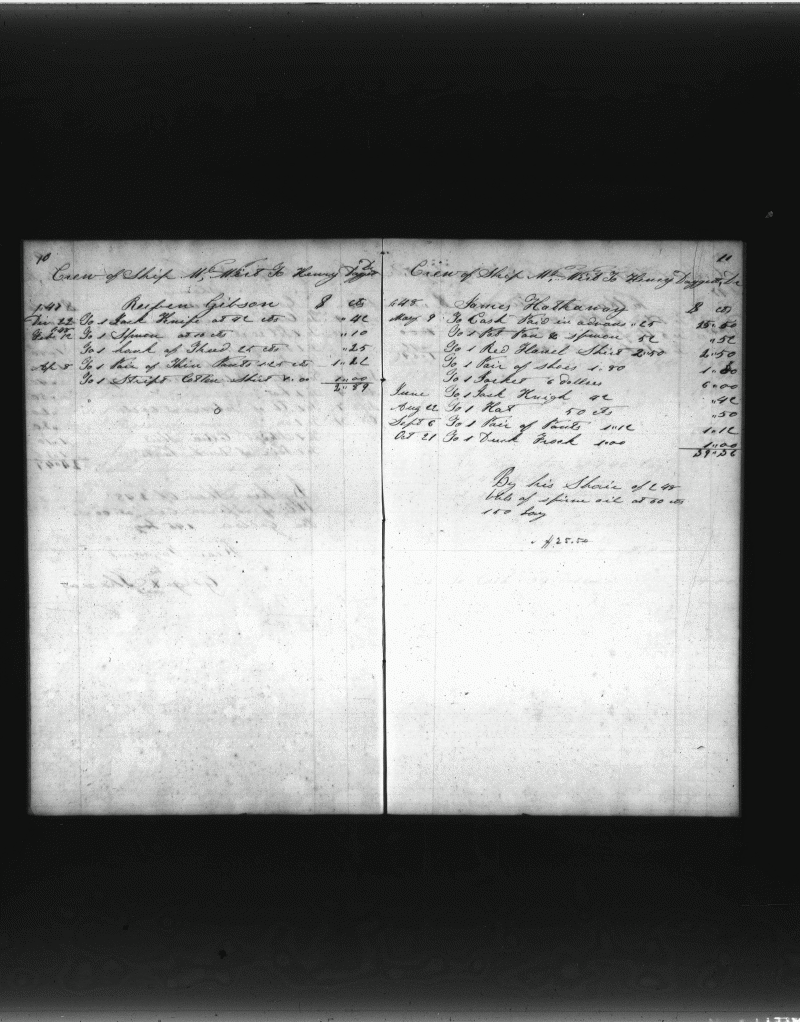 10
Crew of Ship Wm Wirt To Henry Daggett Dr
Reuben Gibson $ cts
Dec 22 To 1 Jack Knife at 42 cts ,,42
Feb To 1 Spoon at 10 cts ,,10
To 1 hank of Thred 25 cts ,,25
Apl 8 To 1 Pair of Thin Pants 1.25 cts
To 1 Stript Shirt 1.00 1,,00
2,,89
11
Crew of Ship Wm Wirt To Henry Daggett Dr
1848 James Hathaway $ cts
May 9 To Cash Paid in advans ,,25 25,,50
To 1 Pot Pan & spoon 52 ,,52
To 1 Red Flanel Shirt 2,,50 2,,50
To 1 Pair of shoes 1.80 1,,80
To 1 Jacket 6 dollers 6,,00
June To 1 Jack Knigh 42 ,,42
Aug 22 To 1 Hat 50 cts ,,50
Sept 6 To 1 Pair of Pants 1,,12 1,,12
Oct 21 To 1 Frock 1,,00 1,,00
By his Share of
bbls of sperm oil at 50 cts
150 Lay
$25.50